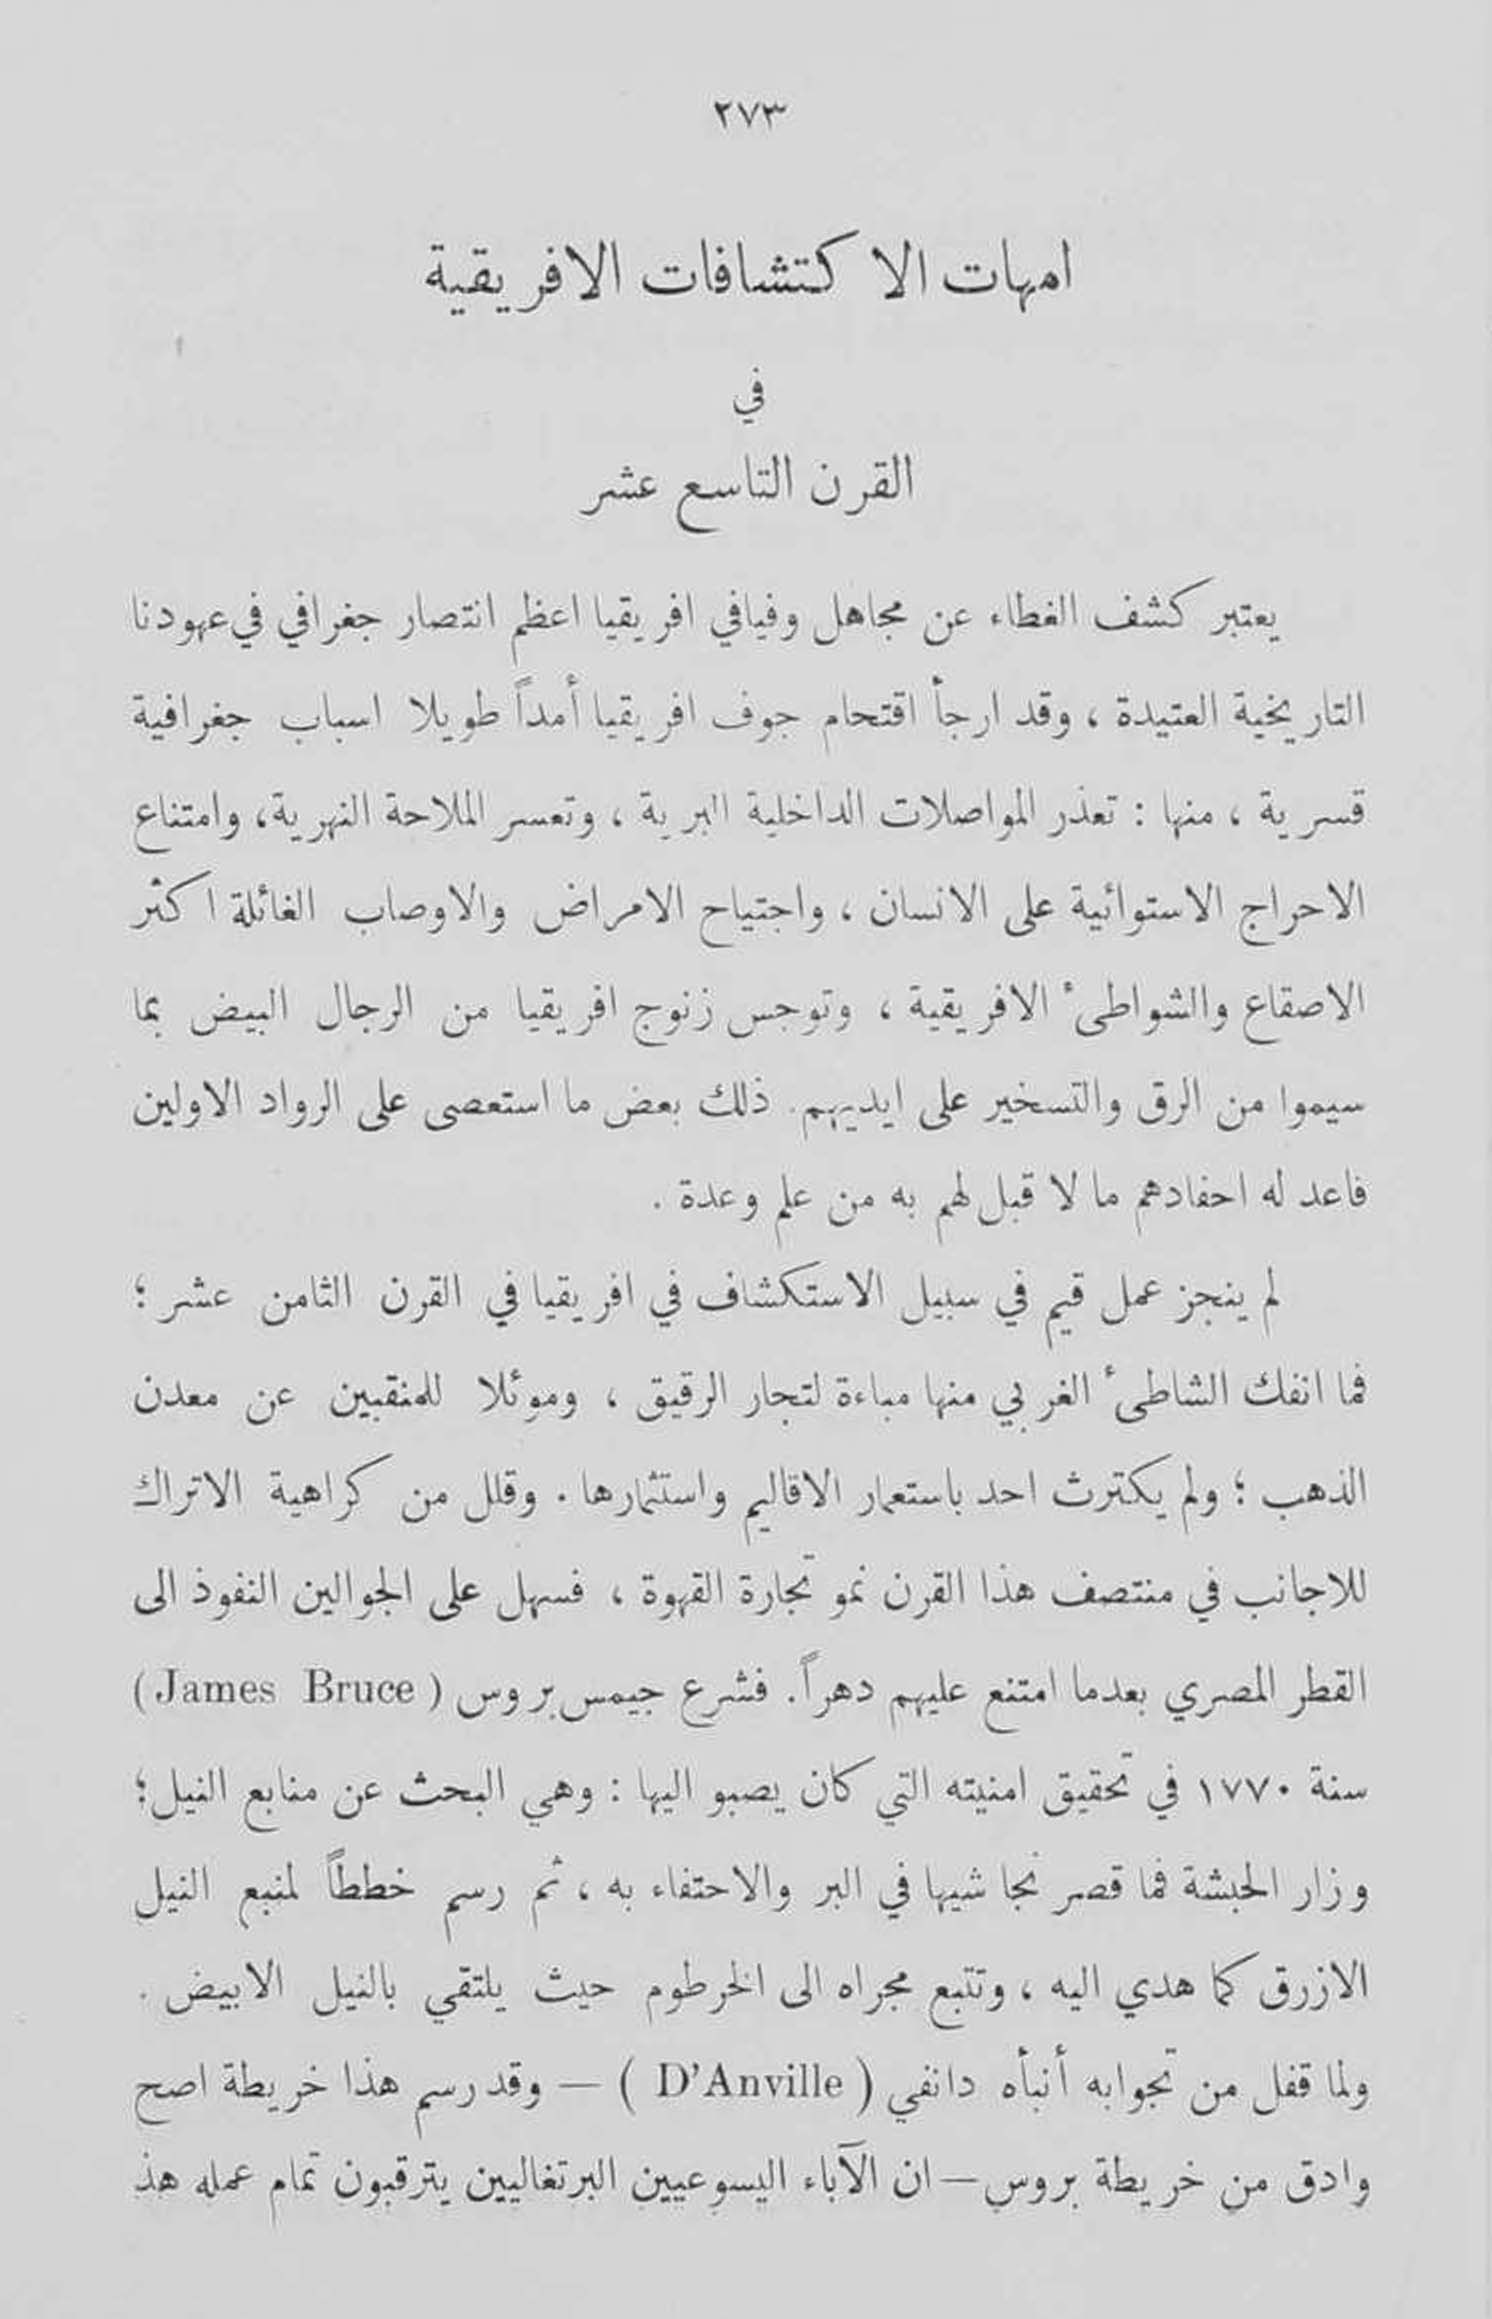 ٢٧٣
امهات الاكتشافات الافريقية
في
القرن التاسع عشر
يعتبر كشف الغطاء عن مجاهل وفيافي افريقيا اعظم انتصار جغرافي في عهودنا
التاريخية العتيدة ، وقد ارجأ اقتحام جوف افريقيا أمداً طويلا اسباب جغرافية
قسرية ، منها : تعذر المواصلات الداخلية البرية ، وتعسر الملاحة النهرية، وامتناع
الاحراج الاستوائية على الانسان ، واجتياح الامراض والاوصاب الغائلة اكثر
الاصقاع والشواطىء الافريقية ، وتوجس زنوج افريقيا من الرجال البيض بما
سيموا من الرق والتسخير على ايديهم. ذلك بعض ما استعصى على الرواد الاولين
فاعد له احفادهم ما لا قبل لهم به من علم وعدة .
لم ينجز عمل قيم في سبيل الاستكشاف في افريقيا في القرن الثامن عشر ؛
فما انفك الشاطىء الغربي منها مباءة لتجار الرقيق ، وموئلا للمنقبين عن معدن
الذهب ؛ ولم يكترث احد باستعمار الاقاليم واستثمارها . وقلل من كراهية الاتراك
للاجانب في منتصف هذا القرن نمو تجارة القهوة ، فسهل على الجوالين النفوذ الى
القطر المصري بعدما امتنع عليهم دهراً. فشرع جيمس بروس (James Bruce)
سنة ١٧٧٠ في تحقيق امنيته التي كان يصبو اليها : وهي البحث عن منابع النيل ؛
وزار الحبشة فما قصر نجاشيها في البر والاحتفاء به ، ثم رسم خططاً لمنبع النيل
الازرق كما هدي اليه ، وتتبع مجراه الى الخرطوم حيث يلتقي بالنيل الابيض .
ولما قفل من تجوابه أنبأه دانفي ( D'Anville ) — وقد رسم هذا خريطة اصح
وادق من خريطة بروس — ان الآباء اليسوعيين البرتغاليين يترقبون تمام عمله هذ